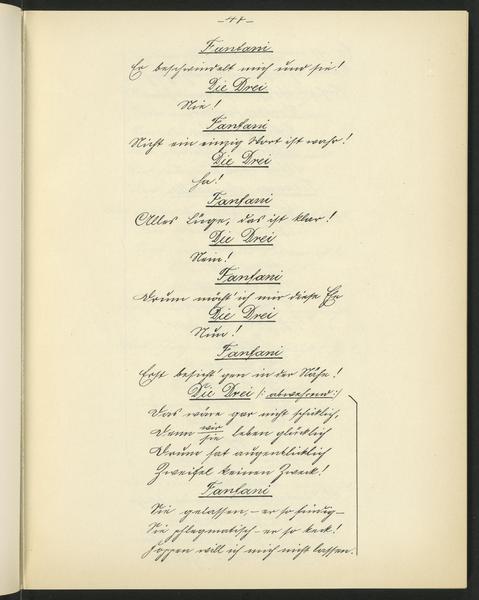 -47-
Fanfani
Er beschwindelt mich und sie!
Die Drei
Nie!
Fanfani
Nicht ein einzig Wort ist wahr!
Die Drei
Ha!
Fanfani
Alles Lüge, das ist klar!
Die Drei
Nein!
Fanfani
Drum möcht' ich mir diese Eh
Die Drei
Nun!
Fanfani
Erst besicht'gen in der Nähe!
Die Drei /: abwehrend :/
Das wäre gar nicht schicklich,
Denn wir leben glücklich
sie
Drum hat augenblicklich
Zweifel keinen Zweck!
Fanfani
Sie gelassen, - er so hündig -
Sie phlegmatisch - er so keck!
Foppen will ich mich nicht lassen.